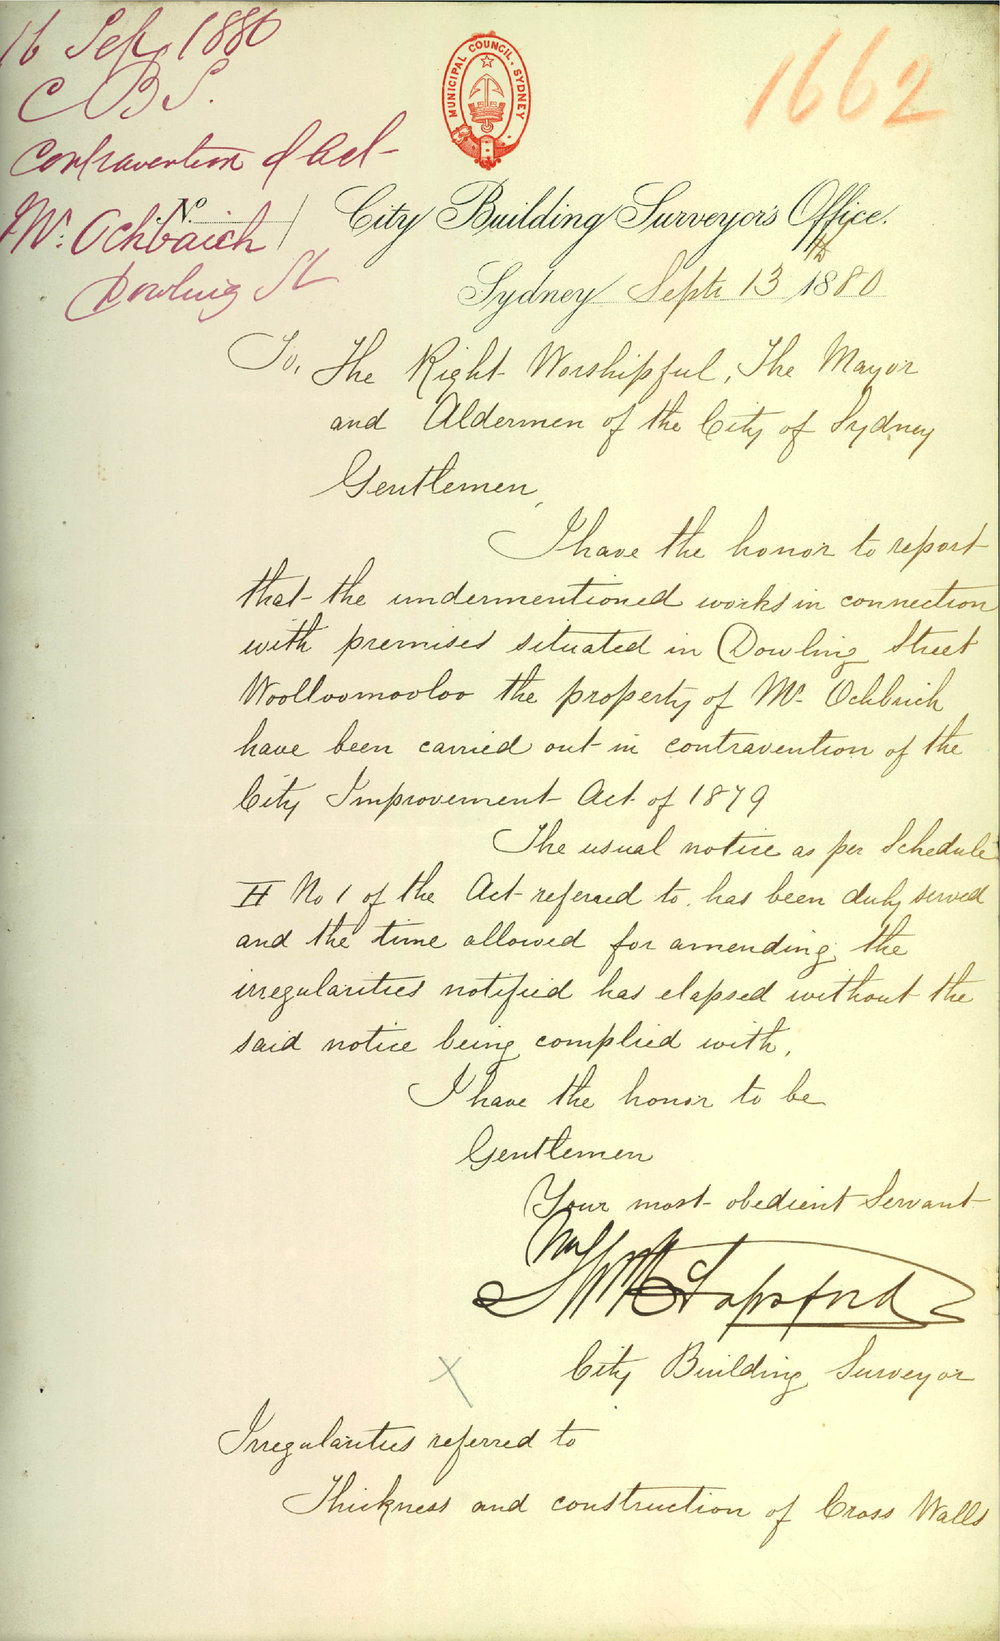 16 Sep 1880
CBS.
Contravention of Act
Mr. Ochbaich
Dowling St
1662
MUNICIPAL COUNCIL. SYDNEY
No
City Building Surveyor's Office.
Sydney Septr 13th 1880
To, The Right Worshipful, The Mayor
and Aldermen of the City of Sydney
Gentlemen,
I have the honor to report
that the undermentioned works in connection
with premises situated in Dowling Street
Woolloomooloo the property of Mr. Ochbaich
have been carried out in contravention of the
City Improvement Act of 1879
The usual notice as per Schedule
H No 1 of the Act referred to, has been duly served
and the time allowed for amending the
irregularities notified has elapsed without the
said notice being complied with.
I have the honor to be
Gentlemen
Your most obedient Servant
Sapsford
City Building Surveyor
X
Irregularities referred to
Thickness and construction of Cross Walls